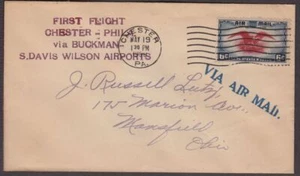 FIRST FLIGHT
CHESTER - PHILA
via BUCKMAN
S. DAVIS WILSON AIRPORTS
CHESTER
MAY 19
PM
PA.
AIR MAIL
6¢ 6¢
VIA AIR MAIL
J. Russell Lutz,
175 Marion Ave.,
Mansfield
Ohio